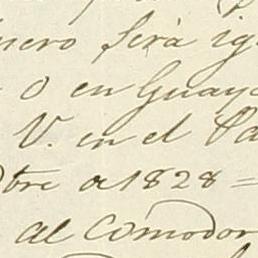 nuero será igu
O en Guaya
V. en el Pa
bre a 1828=
al Comodor